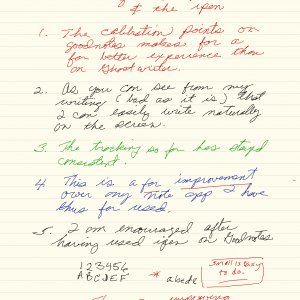 & the ipen
1. The calibration points on
goodnotes makes for a
far better experience than
on Ghostwriter.
2. As you can see from my
writing (bad as it is) that
I can easily write naturally
on the screen.
3. The tracking so far has stayd
consistent.
4. This is a far improvement
over any note app I have
thus far used.
5. I am encouraged after
having used ipen on Goodnotes
123456
ABCDEF
* abcde
Small is easy
to do.